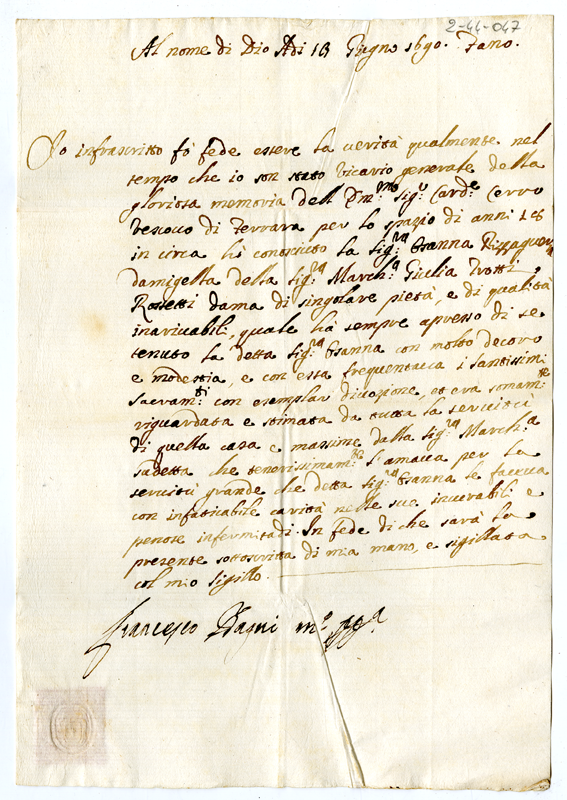 2-44-047
Al nome di Dio Adi 18 Giugno 1690. Fano.
Io infrascritto fò fede essere la uerità qualmente nel
tempo che io son stato Vicario generale della
gloriosa memoria dell Em.mo Sig.r Card.e Cerro
Vescouo di Ferrara per lo spazio di anni
in circa hò conosciuto la Sig.ra Osanna
damigella della Sig.ra March.a Giulia Trotti
Rossetti dama di singolare pietà, e di qualità
inariuabili, quale hà sempre apresso di se
tenuto la detta Sig.ra Osanna con molto decoro
e modestia, e con essa frequentaua i Santissim:
Sacram.ti con esemplar diuozione, et era somam.te
riguardata e stimata da tutta la seruitù
di quella casa e massime dalla Sig.ra March.a
sudetta che tenerissimam.te l'amaua per la
seruitù grande che detta Sig.ra Osanna le faceua
con infaticabile carità nelle sue incurabili e
penose infermitadi. In fede di che sarà la
presente sottoscritta di mia mano, e sigillata
col mio Sigillo.
Francesco m.o